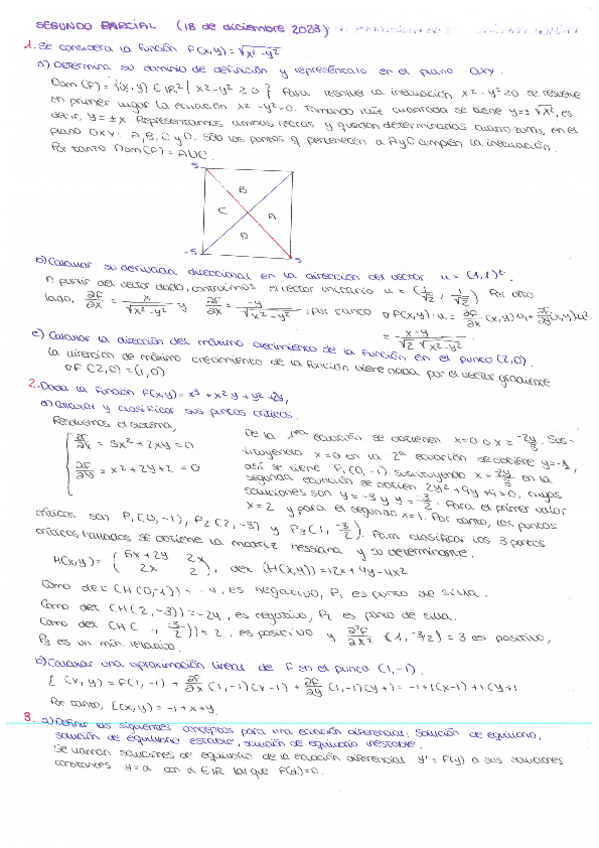 SEGUNDO PARCIAL (18 de diciembre 2023)
1. Se considera la función F(x,y) = √x²-y²
a) Determina su dominio de definición y represéntalo en el plano OXY.
Dom(F) = {(x,y) ∈ ℝ² | x²-y² ≥ 0} Para resolver la inecuación x²-y² ≥ 0 se resuelve
en primer lugar la ecuación x²-y²=0. Tomando raíz cuadrada se tiene y=±√x², es
decir, y = ±x Representamos ambas rectas y quedan determinadas cuatro zonas, en el
plano OXY: A, B, C y D. Sólo los puntos q pertenecen a A y C cumplen la inecuación.
Por tanto Dom(F) = AUC.
5
B
C
A
D
-5
5
b) Calcular su derivada direccional en la dirección del vector u = (1,1)ᵗ.
A partir del vector dado, construimos el vector unitario u = (1/√2, 1/√2) Por otro
lado, ∂F/∂x = x/√x²-y² y ∂F/∂y = -y/√x²-y², por tanto ∇F(x,y)·u = ∂F/∂x (x,y)u₁+ ∂F/∂y (x,y)u₂
= x-y/√2 √x²-y²
c) Calcular la dirección del máximo crecimiento de la función en el punto (2,0).
La dirección de máximo crecimiento de la función viene dada por el vector gradiente
∇F(2,0) = (1,0)
2. Dada la función F(x,y) = x³ + x²y + y² + 2y,
a) Calcular y clasificar sus puntos críticos.
Resolvemos el sistema,
∂F/∂x = 3x² + 2xy = 0
∂F/∂y = x² + 2y + 2 = 0
De la 1ª ecuación se obtienen x=0 o x = -2y/3. Sus-
tituyendo x=0 en la 2ª ecuación se obtiene y=-1,
así se tiene P₁(0,-1). Sustituyendo x = -2y/3 en la
segunda ecuación se obtien 2y²+9y+9=0, cuyas
soluciones son y = -3 y y = -3/2. Para el primer valor
x = 2 y para el segundo x=1. Por tanto, los puntos
críticos son P₁(0,-1), P₂(2,-3) y P₃(1, -3/2). Para clasificar los 3 puntos
críticos hallados se obtiene la matriz hessiana y su determinante.
H(x,y) = (6x+2y 2x
2x 2), det (H(x,y)) = 12x + 4y - 4x²
Como det (H(0,-1)) = -4, es negativo, P₁ es punto de silla.
Como det (H(2,-3)) = -24, es negativo, P₂ es punto de silla.
Como det (H( , -3/2)) = 2, es positivo y ∂²F/∂x² (1,-3/2) = 3 es positivo,
P₃ es un mín. relativo.
b) Calcular una aproximación lineal de F en el punto (1,-1).
L(x,y) = F(1,-1) + ∂F/∂x (1,-1)(x-1) + ∂F/∂y (1,-1)(y+1) = -1+1(x-1)+1(y+1
Por tanto, L(x,y) = -1+x+y.
3. a) Definir los siguientes conceptos para una ecuación diferencial: solución de equilibrio,
solución de equilibrio estable, solución de equilibrio inestable.
Se llaman soluciones de equilibrio de la ecuación diferencial y' = F(y) a sus soluciones
constantes y=α con α ∈ ℝ tal que F(α)=0.